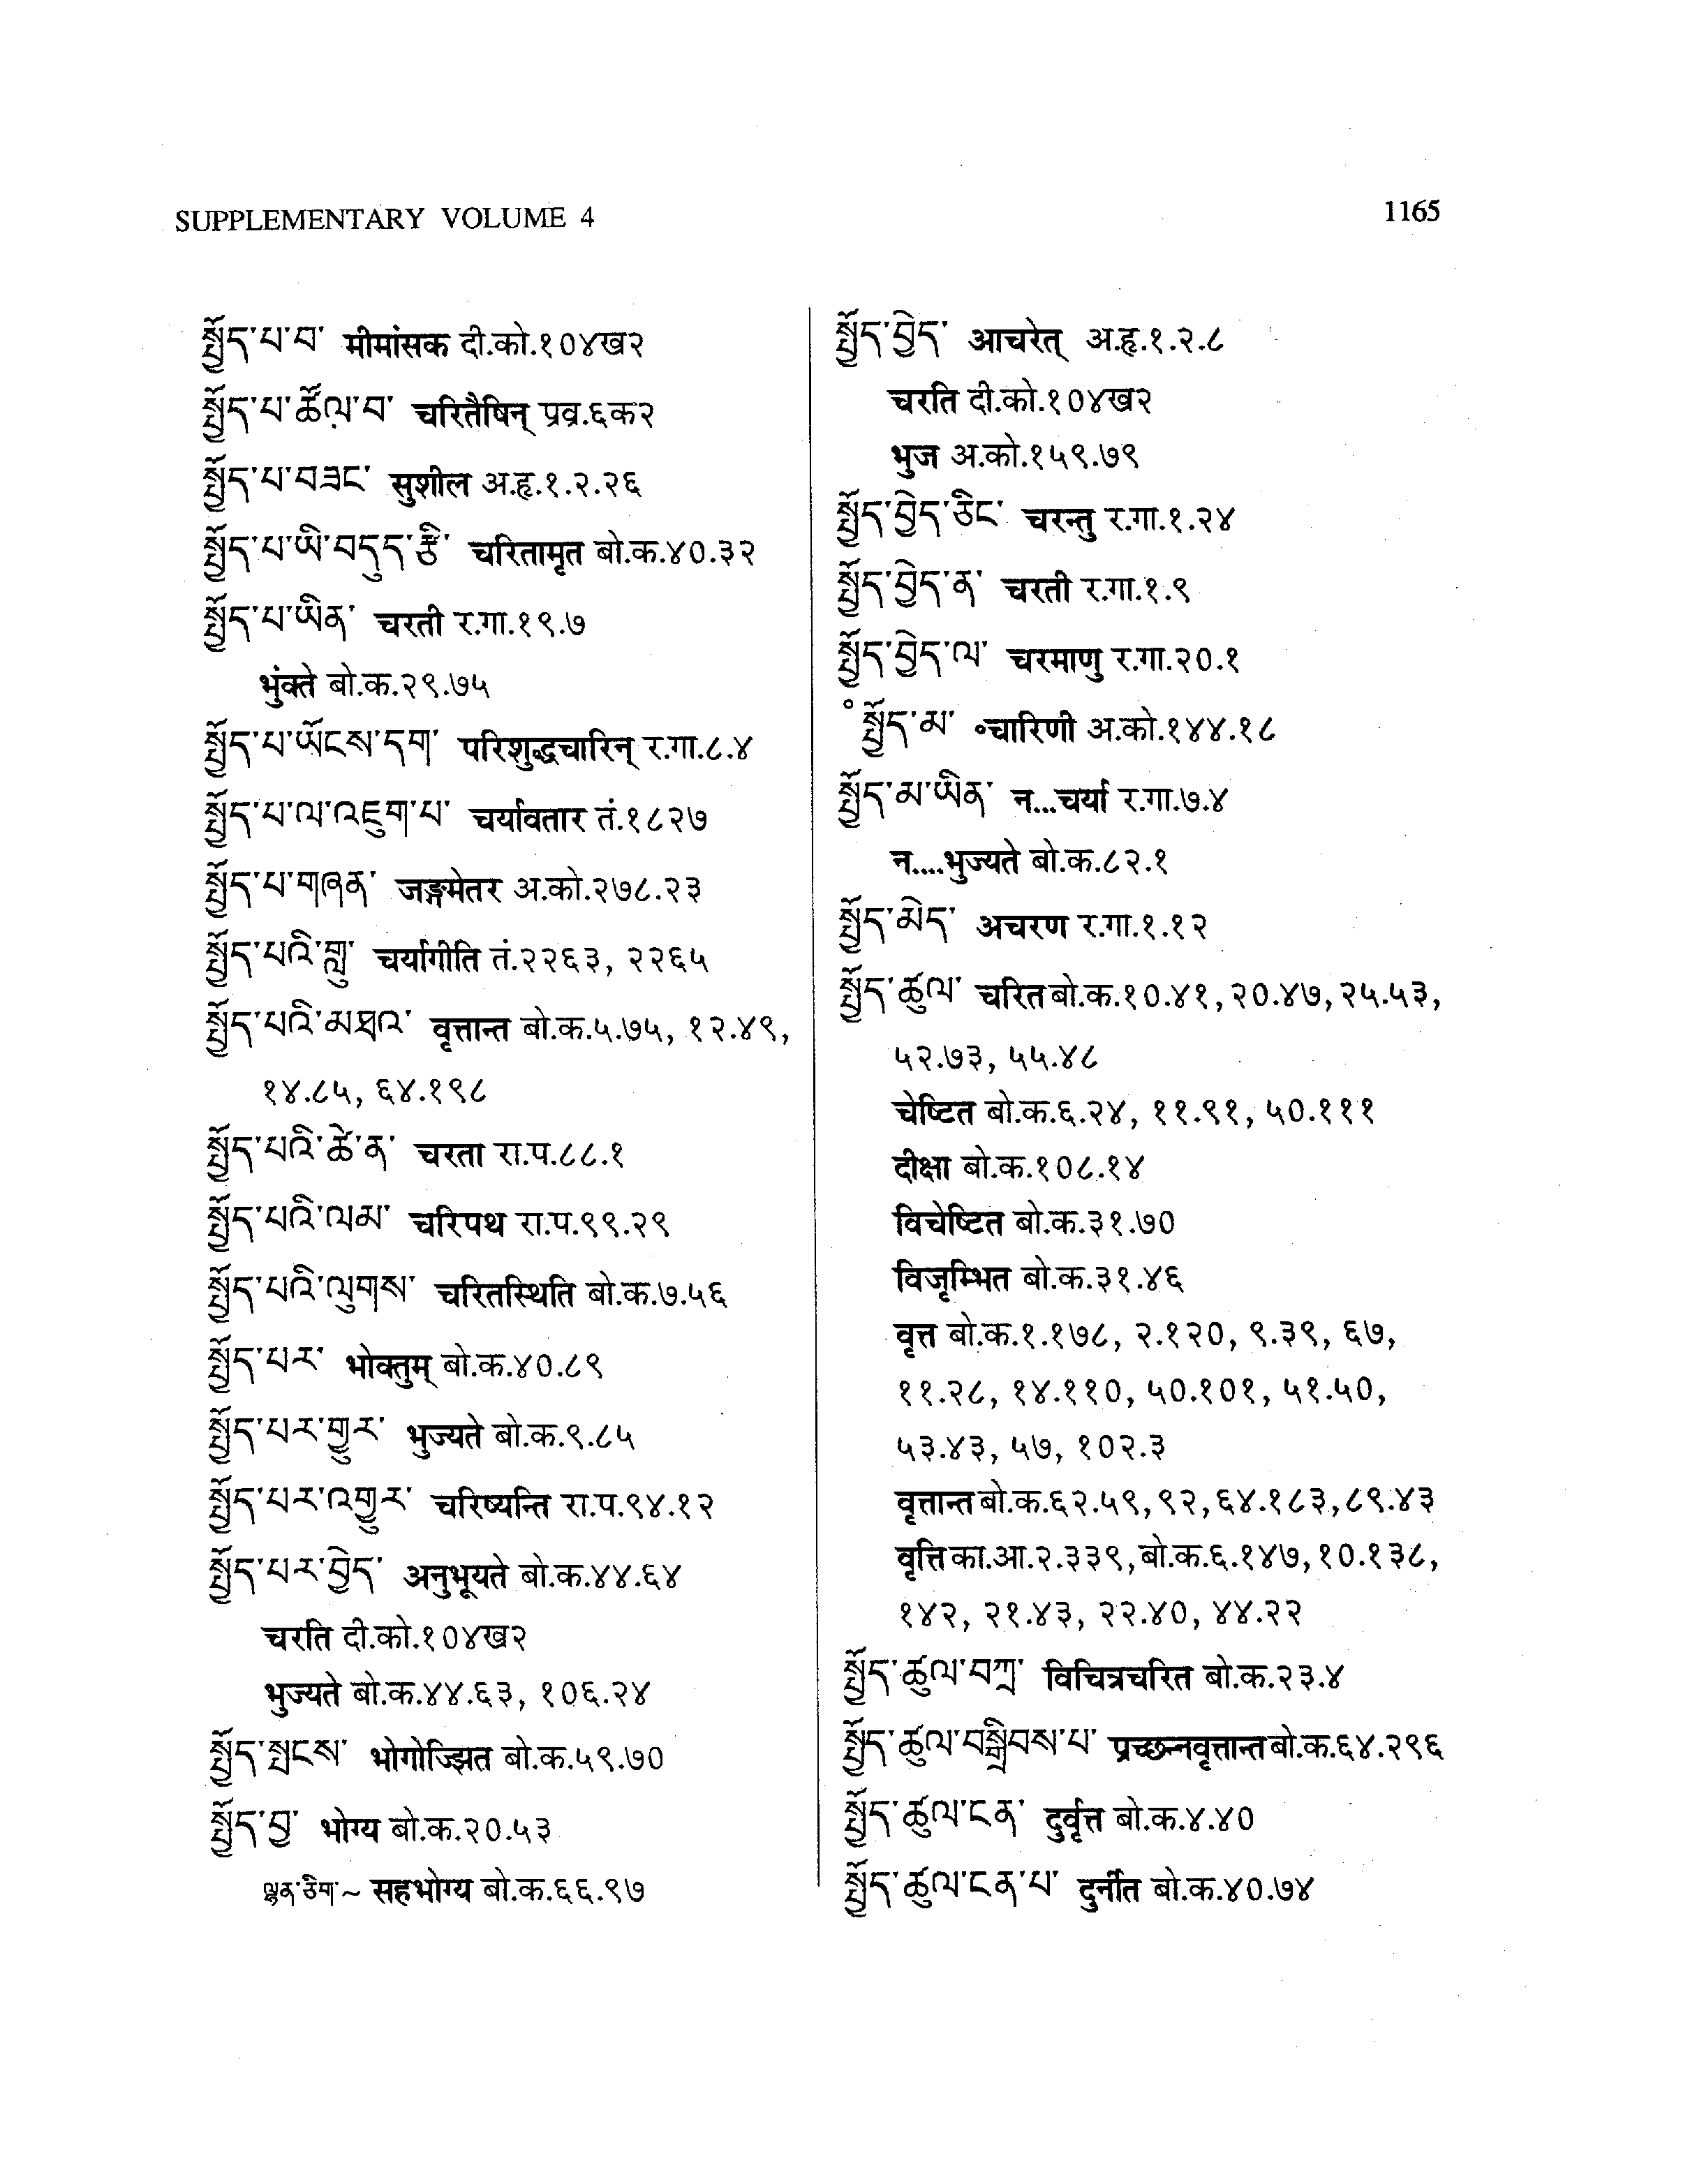 SUPPLEMENTARY VOLUME 4
1165
སྤྱོད་པ་བ་ मीमांसक दी.को.१०४ख२
སྤྱོད་པ་ཚོལ་བ་ चरितैषिन् प्रव्र.६क२
སྤྱོད་པ་བཟང་ सुशील अ.हृ.१.२.२६
སྤྱོད་པ་ཡི་བདུད་རྩི་ चरितामृत बो.क.४०.३२
སྤྱོད་པ་ཡིན་ चरती र.गा.१९.७
भुंक्ते बो.क.२९.७५
སྤྱོད་པ་ཡོངས་དག་ परिशुद्धचारिन् र.गा.८.४
སྤྱོད་པ་ལ་འཇུག་པ་ चर्यावतार तं.१८२७
སྤྱོད་པ་གཞན་ जङ्गमेतर अ.को.२७८.२३
སྤྱོད་པའི་གླུ་ चर्यागीति तं.२२६३, २२६५
སྤྱོད་པའི་མཐའ་ वृत्तान्त बो.क.५.७५, १२.४९,
१४.८५, ६४.१९८
སྤྱོད་པའི་ཚེ་ན་ चरता रा.प.८८.१
སྤྱོད་པའི་ལམ་ चरिपथ रा.प.९९.२९
སྤྱོད་པའི་ལུགས་ चरितस्थिति बो.क.७.५६
སྤྱོད་པར་ भोक्तुम् बो.क.४०.८९
སྤྱོད་པར་གྱུར་ भुज्यते बो.क.९.८५
སྤྱོད་པར་འགྱུར་ चरिष्यन्ति रा.प.९४.१२
སྤྱོད་པར་བྱེད་ अनुभूयते बो.क.४४.६४
चरति दी.को.१०४ख२
भुज्यते बो.क.४४.६३, १०६.२४
སྤྱོད་སྤངས་ भोगोज्झित बो.क.५९.७०
སྤྱོད་བྱ་ भोग्य बो.क.२०.५३
ལྷན་ཅིག་~ सहभोग्य बो.क.६६.९७
སྤྱོད་བྱེད་ आचरेत् अ.हृ.१.२.८
चरति दी.को.१०४ख२
भुज अ.को.१५९.७९
སྤྱོད་བྱེད་ཅིང་ चरन्तु र.गा.१.२४
སྤྱོད་བྱེད་ན་ चरती र.गा.१.९
སྤྱོད་བྱེད་ལ་ चरमाणु र.गा.२०.१
°སྤྱོད་མ་ ॰चारिणी अ.को.१४४.१८
སྤྱོད་མ་ཡིན་ न...चर्या र.गा.७.४
न....भुज्यते बो.क.८२.१
སྤྱོད་མེད་ अचरण र.गा.१.१२
སྤྱོད་ཚུལ་ चरित बो.क.१०.४१, २०.४७, २५.५३,
५२.७३, ५५.४८
चेष्टित बो.क.६.२४, ११.९१, ५०.१११
दीक्षा बो.क.१०८.१४
विचेष्टित बो.क.३१.७०
विजृम्भित बो.क.३१.४६
वृत्त बो.क.१.१७८, २.१२०, ९.३९, ६७,
११.२८, १४.११०, ५०.१०१, ५१.५०,
५३.४३, ५७, १०२.३
वृत्तान्त बो.क.६२.५९, ९२, ६४.१८३, ८९.४३
वृत्ति का.आ.२.३३९, बो.क.६.१४७, १०.१३८,
१४२, २१.४३, २२.४०, ४४.२२
སྤྱོད་ཚུལ་བཀྲ་ विचित्रचरित बो.क.२३.४
སྤྱོད་ཚུལ་བསྒྲིབས་པ་ प्रच्छन्नवृत्तान्त बो.क.६४.२९६
སྤྱོད་ཚུལ་ངན་ दुर्वृत्त बो.क.४.४०
སྤྱོད་ཚུལ་ངན་པ་ दुर्नीत बो.क.४०.७४